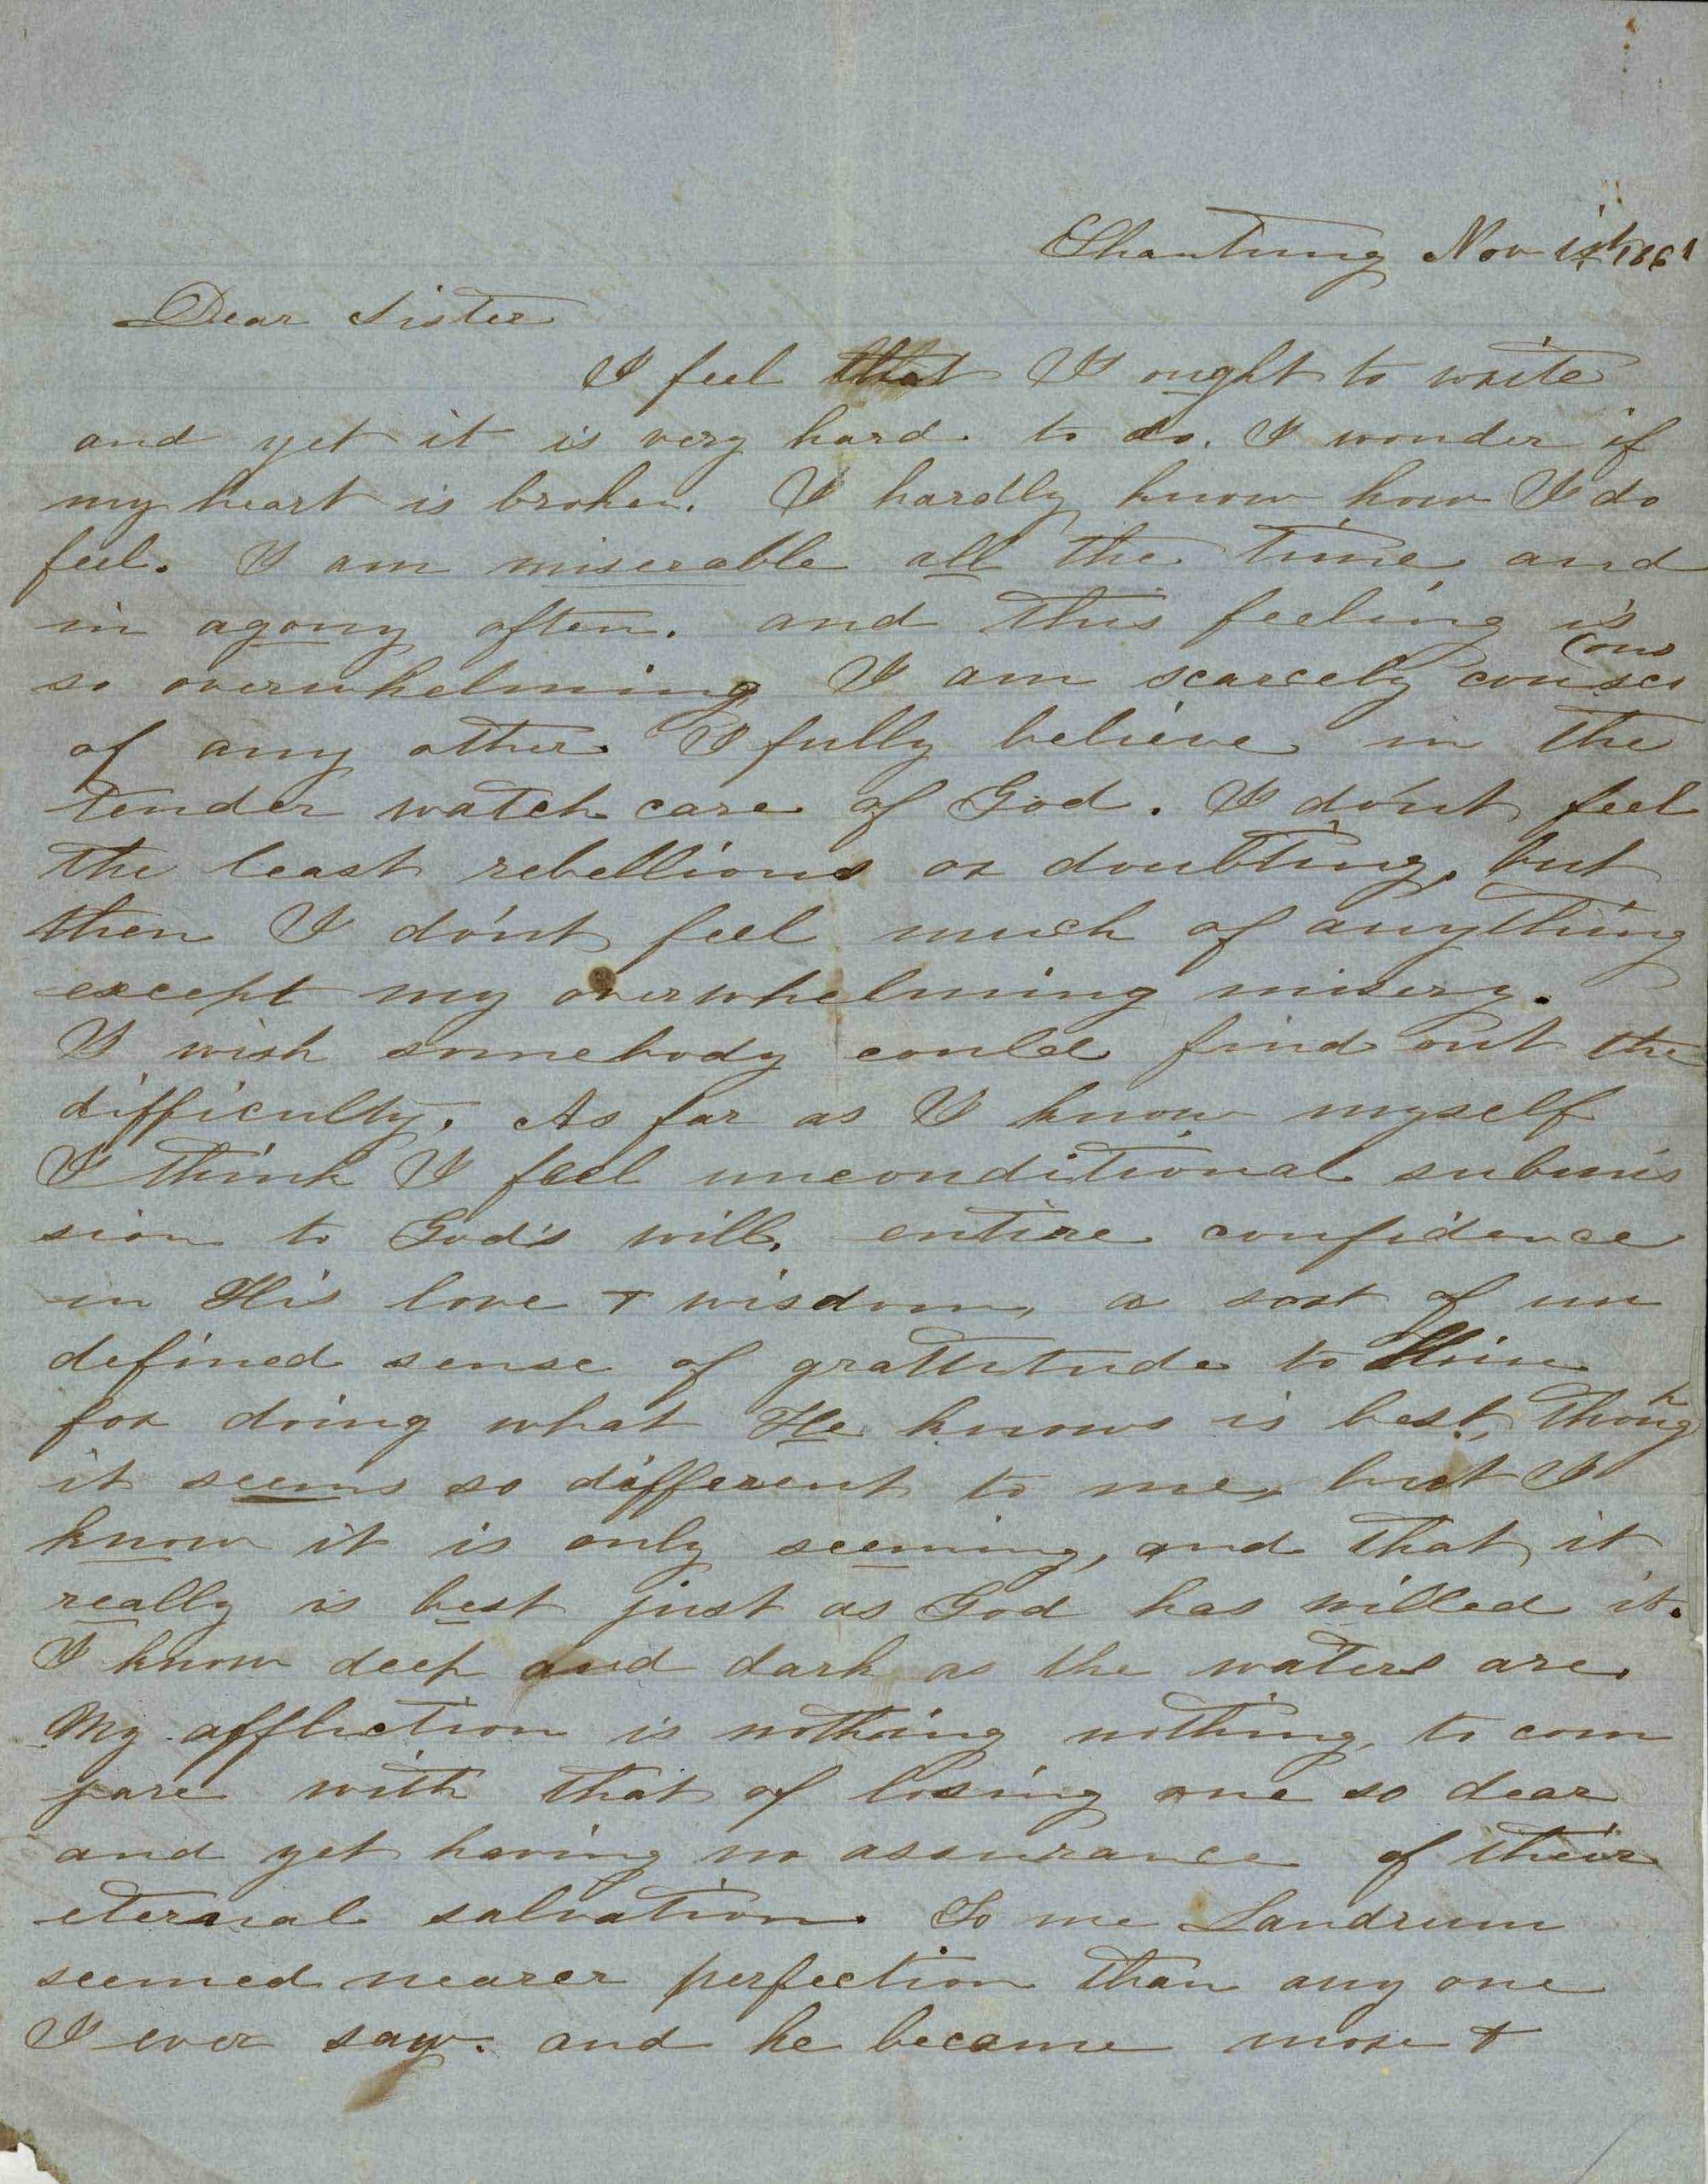 Shantung Nov 1st 1861
Dear Sister
I feel that I ought to write
and yet it is very hard to do. I wonder if
my heart is broken. I hardly know how I do
feel. I am miserable all the time and
in agony often. and this feeling is
so overwhelming I am scarcely consci
ous
of any other. I fully believe in the
tender watch care of God. I don't feel
the least rebellious or doubting, but
then I don't feel much of anything
except my overwhelming misery.
I wish somebody could find out the
difficulty. As far as I know myself
I think I feel unconditional submis
sion to God's will, entire confidence
in His love + wisdom, a sort of un
defined sense of grattitude to Him
for doing what He knows is best, though
it seems so different to me, but I
know it is only seeming, and that it
really is best just as God has willed it.
I know deep and dark as the waters are.
My affliction is nothing nothing, to com
pare with that of losing one so dear
and yet having no assurance of their
eternal salvation. To me Landrum
seemed nearer perfection than any one
I ever saw. and he became more +